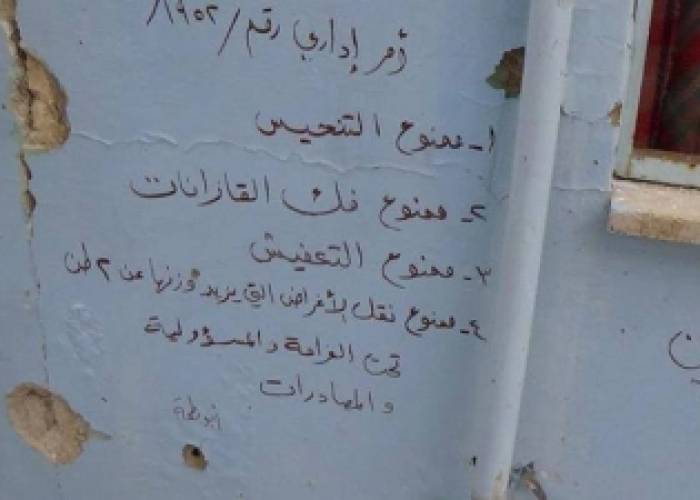 أمر إداري رقم /١٩٥٢/
١- ممنوع التنحيس
٢- ممنوع فك القازانات
٣- ممنوع التعفيش
٤- ممنوع نقل الأغراض التي يزيد وزنها عن ٢ طن
تحت الغرامة والمسؤولية
والمصادرات